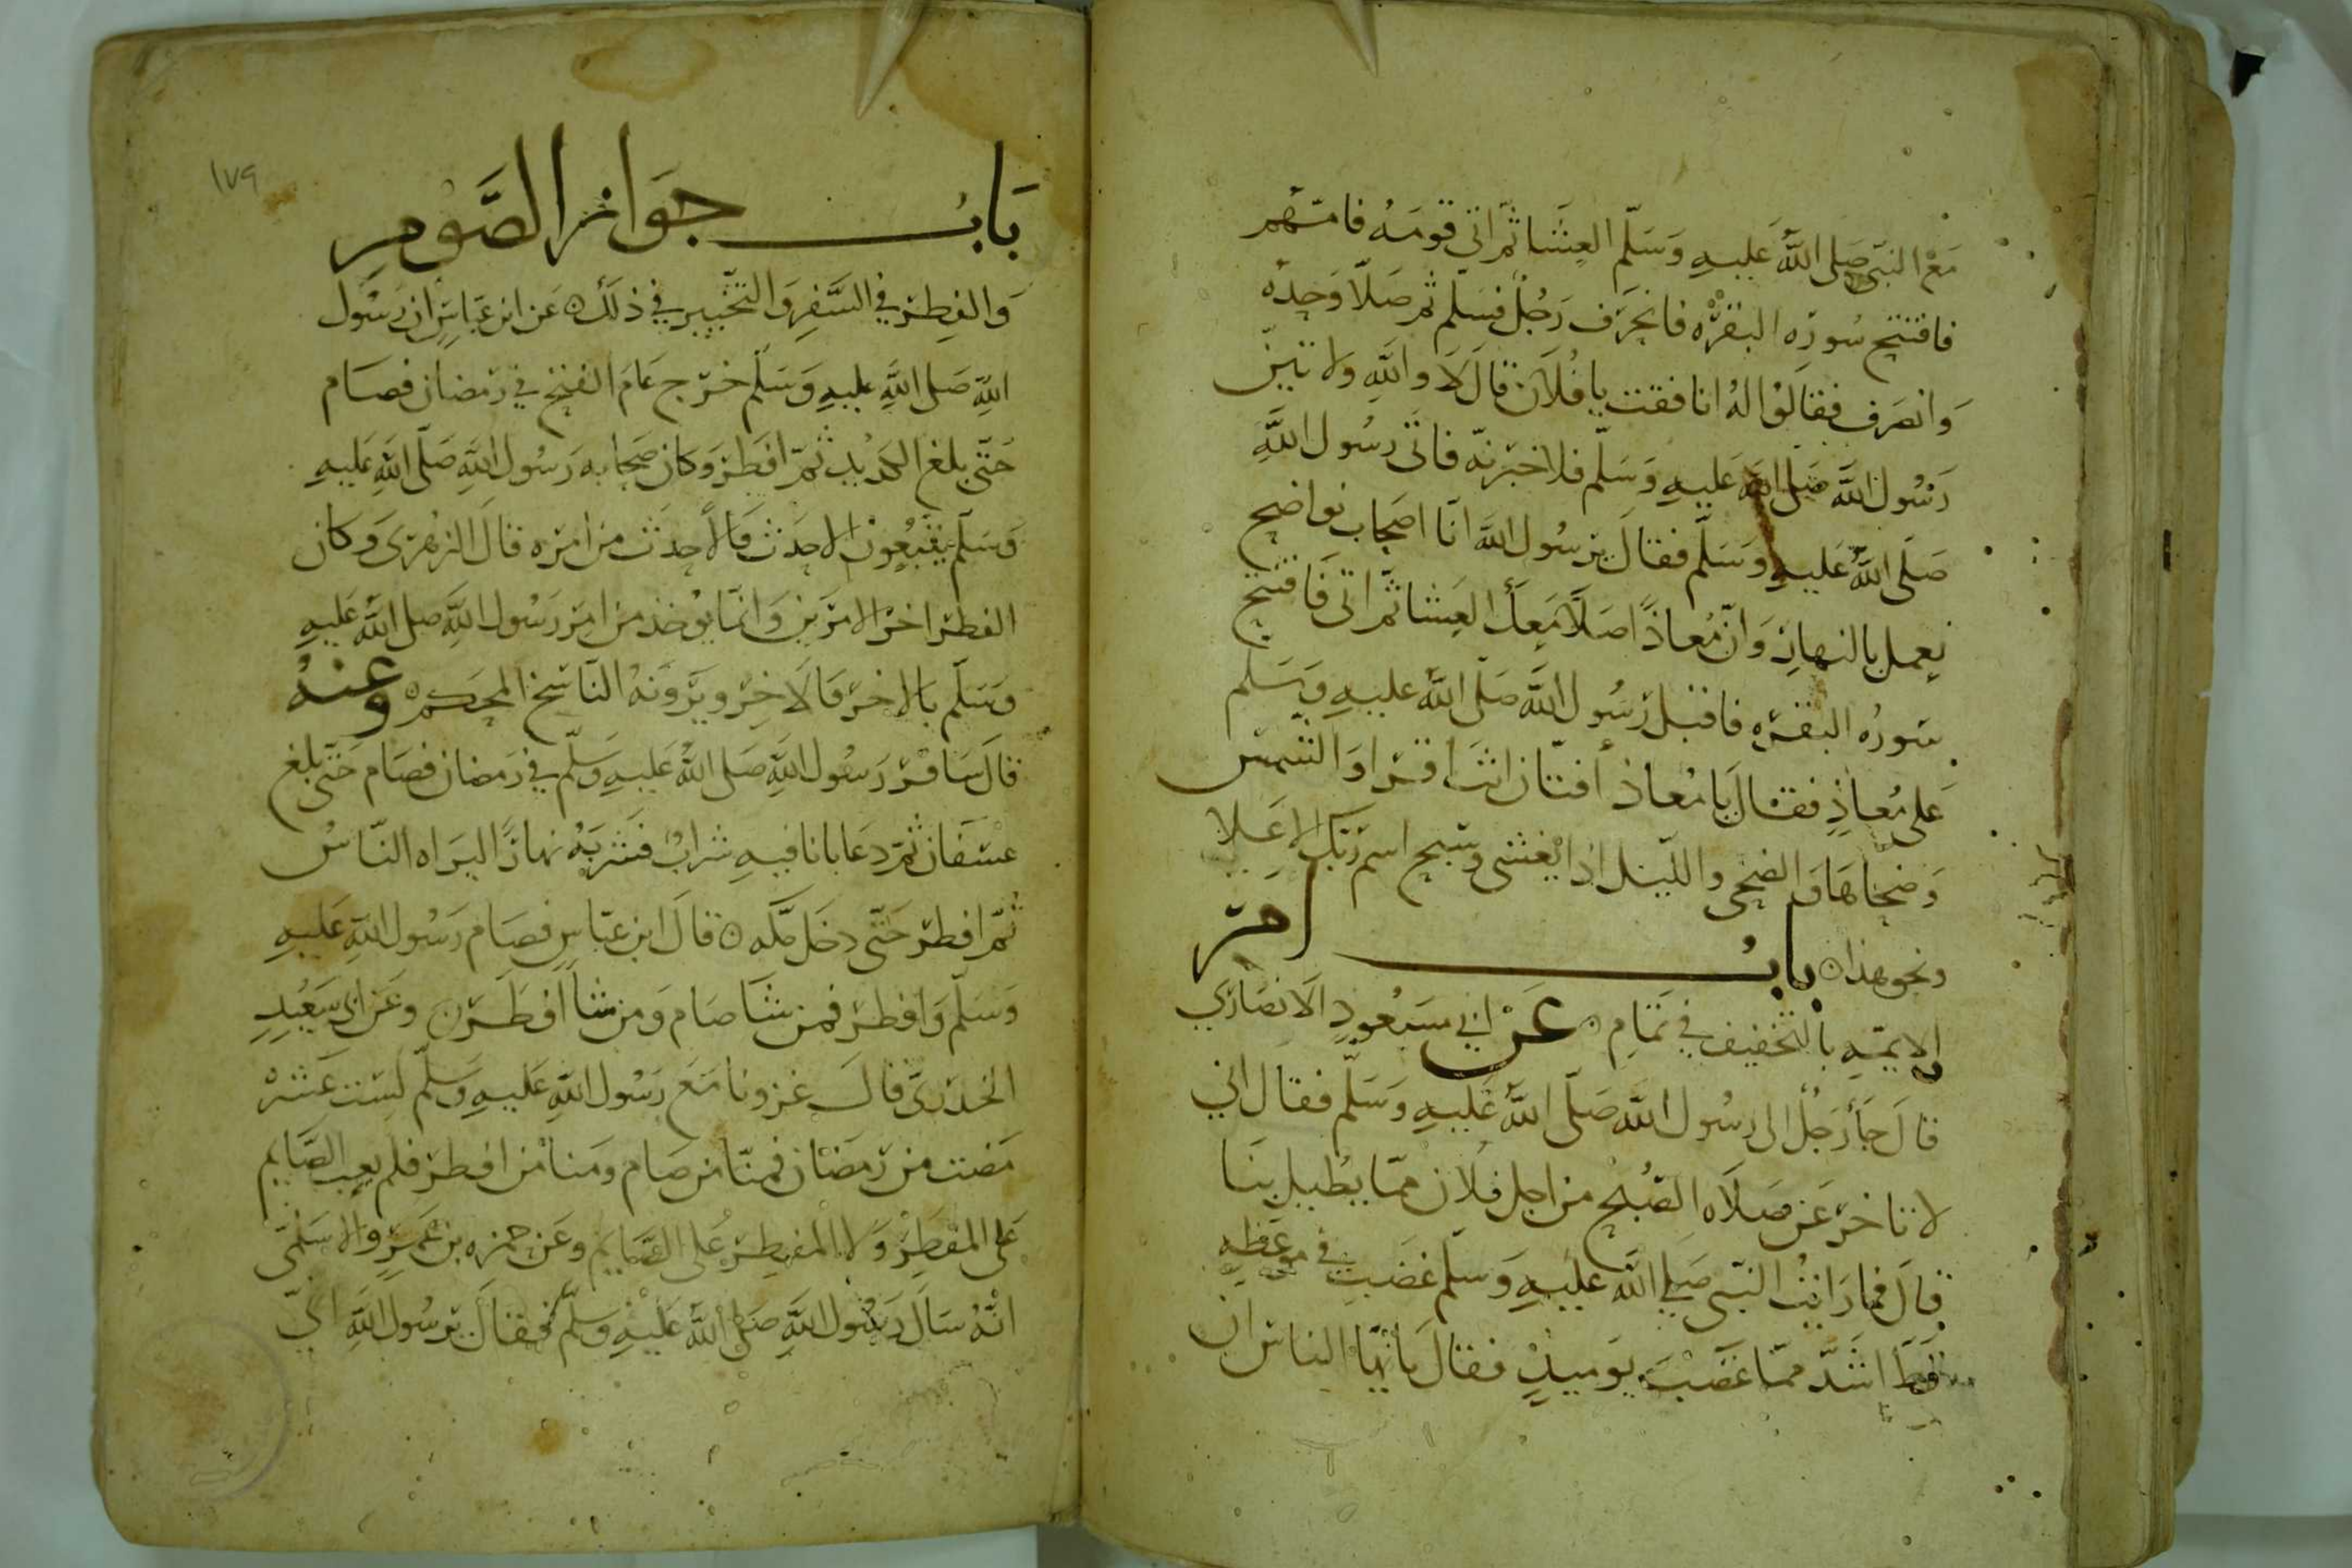 مَعَ النبّي صَلى اللهُ عَليهِ وَسَلّم العِشَا ثمّ اتى قومَهُ فامّهم
فافتتح سُورَه البقرَه فانحَرَف رَجُلٌ فسَلم ثم صَلّا وَحدَه
وَانصَرف فقالوُا لهُ انافقت يا فُلاَن قالَ لاَ واللهِ ولاتينّ
رَسُول اللهِ صَلى الله عَليهِ وَسَلّم فلاخبرنّه فاتى رسُول اللهِ
صَلى اللهُ عَليهِ وسَلّم فقالَ يرسُول الله انّا اصحاب نواضح
نعمل بالنهارِ وَانّ مُعاذًا صَلّا مَعكَ العِشا ثمّ اتى فَافتتح
سُورهُ البقرَه فاقبل رَسُول اللهِ صَلى اللهُ عليهِ وَسَلم
عَلى مُعاذٍ فقال يَا مُعاذ أفتّان انتَ اقرا وَالشمس
وَضحَاهَا وَالضحى والليل اذا يغشى وسَبح اسم رَبّكَ الاعَلا
ونحو هذا ه بابُ امر
الايمّهِ بالتخفيف في تَمَامِ ه عَنْ ابي مسَعُودٍ الاَنصَاري
قالَ جَأ رَجُلٌ الى رسُول اللهِ صَلّى اللهُ عَليهِ وَسَلّم فقال اني
لاتاخر عَن صَلاَه الصُبْح من اجل فلاَن ممّا يطُيل بنَا
قالَ فمارَايتُ النبّي صَلى الله عليهِ وَسَلّم غضَبَ في موعَظهٍ
قطَ اشَدَّ ممّا غضَبَ يَوميذٍ فقالَ يَأيهّا الناس ان
١٧٩
بَابُ جوَاز الصَّوْمِ
وَالفِطرْ في السَّفرِ وَالتَخْييرِ في ذلكَ ه عَن ابن عَباسٍ ان رَسُول
اللهِ صَلى اللهِ عليهِ وَسَلّم خرَج عَامَ الفتح في رَمضان فصَام
حَتّى بلغ الكدَيْد ثمّ افطرَ وَكانَ صَحابه رَسُول اللهِ صَلّى اللهِ عَليهِ
وَسَلّم يتَّبعُونَ الاحَدَث فَالأحدَث من امرْه قالَ الزهرْى وَكان
الفطرْ اخرَ الامرَين وَانمّا يوُخذ من امِر رَسُول اللهِ صَلى اللهُ عَليهِ
وَسَلّم بالاخرَ فَالاَخِرْ ويَرَونَهُ النَاسَخ المحكم ه وعنهُ
قالَ سَافرْ رَسُول اللهِ صَلى اللهُ عَليهِ وَسَلّم في رَمضان فصَام حَتّى بلغ
عسْفَان ثمّ دعَا بانا فيهِ شَرابٌ فَشربَهُ نهارًا ليرَاه النّاسُ
ثمّ افطرْ حَتّى دخَل مَكه ه قالَ ابن عبّاس فصَام رَسُول اللهِ عَليهِ
وَسَلّم وَافطرْ فمن شَا صَام وَمن شاَ افطَرْ ه وعَن ابى سَعُيدٍ
الخدرَىّ قالَ غزونا مَعَ رسُول اللهِ عَليهِ وَسَلّم لسِت عَشرْ
مَضت من رَمضَان فمنّا من صَام وَمنا مَن افطرْ فلم يَعِب الصَّايم
عَلى المفطِرْ وَلا المفطِرْ عَلى الصَّايم وعَن حمزه بن عَمرٍ والاسَلمى
انهُ سَالَ رَسُول اللهِ صَلى اللهُ عَليْهِ وسَلّم فَقالَ يرَسُول اللهِ انيّ